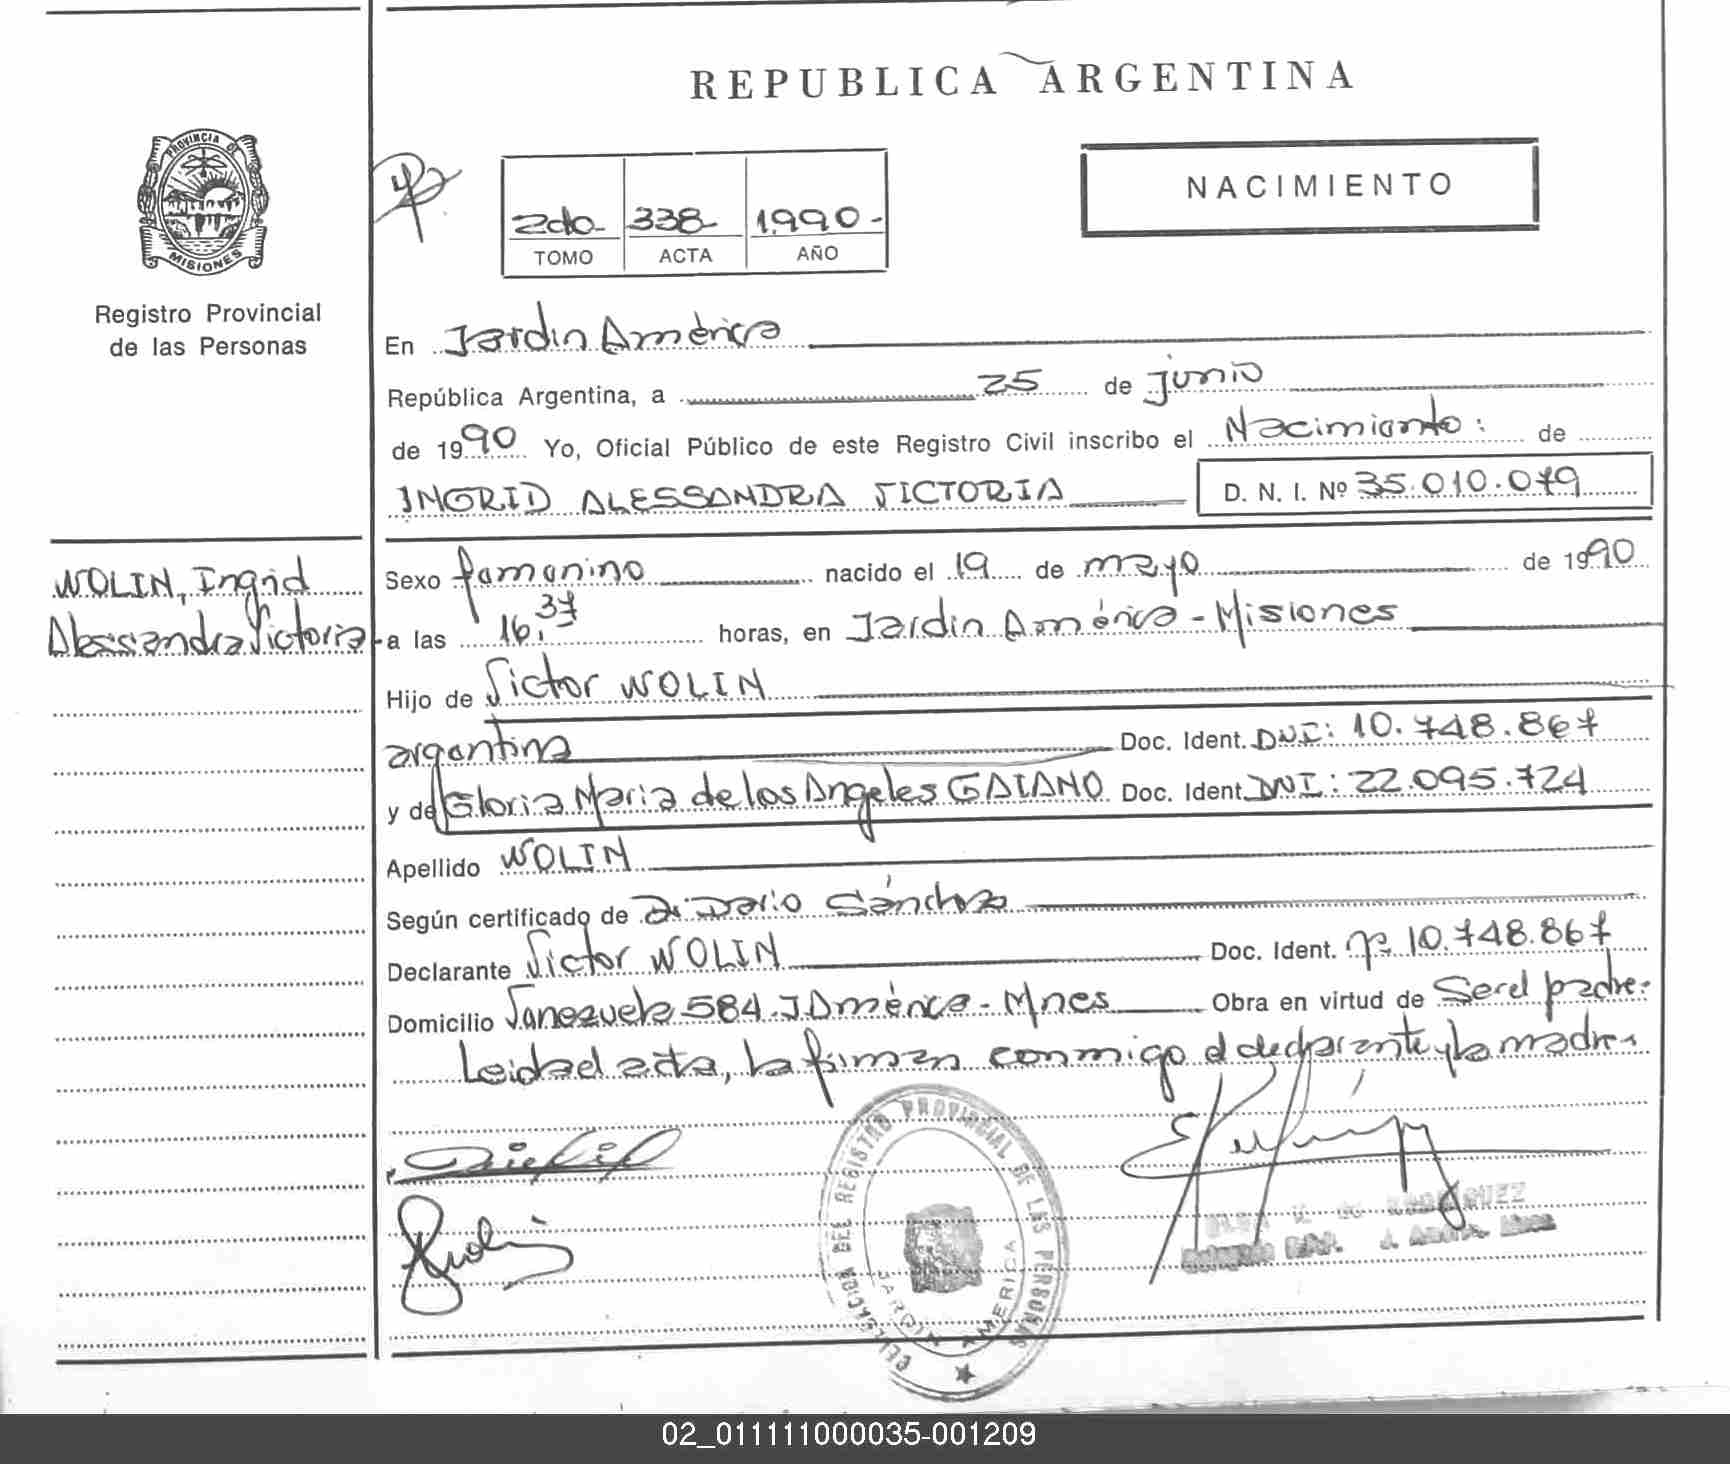 REPUBLICA ARGENTINA
PROVINCIA DE
MISIONES
Registro Provincial
de las Personas
2do- 338- 1.990.-
TOMO ACTA AÑO
NACIMIENTO
En Jardín América
República Argentina, a 25 de junio
de 1990 Yo, Oficial Público de este Registro Civil inscribo el Nacimiento: de
INGRID ALESSANDRA VICTORIA D. N. I. Nº 35.010.079
WOLIN, Ingrid
Alessandra Victoria-
Sexo femenino nacido el 19 de mayo de 1990
a las 16.37 horas, en Jardín América - Misiones
Hijo de Victor WOLIN
argentina Doc. Ident. DNI: 10.748.867
y de Gloria Maria de los Angeles GAIANO Doc. Ident. DNI: 22.095.724
Apellido WOLIN
Según certificado de Dr. Dario Sánchez
Declarante Victor WOLIN Doc. Ident. nº 10.748.867
Domicilio Venezuela 584. J América - Mnes Obra en virtud de Ser el padre.
Leida el acta, la firman conmigo el declarante y la madre.
DELEGACION DEL REGISTRO PROVINCIAL DE LAS PERSONAS
JARDIN AMERICA
RODRIGUEZ
02_011111000035-001209